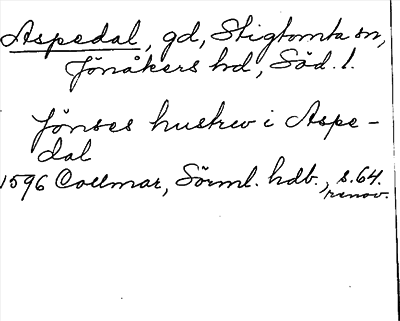 Aspedal, gd, Stigtomta sn,
Jönåkers hd, Söd. l.
Jönses hustrw i Aspe-
dal
1596 Collmar, Sörml. hdb., s. 64.
renov.